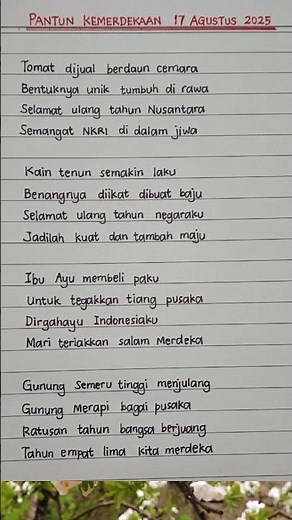 PANTUN KEMERDEKAAN 17 AGUSTUS 2025
Tomat dijual berdaun cemara
Bentuknya unik tumbuh di rawa
Selamat ulang tahun Nusantara
Semangat NKRI di dalam jiwa
Kain tenun semakin laku
Benangnya diikat dibuat baju
Selamat ulang tahun negaraku
Jadilah kuat dan tambah maju
Ibu Ayu membeli paku
Untuk tegakkan tiang pusaka
Dirgahayu Indonesiaku
Mari teriakkan salam Merdeka
Gunung Semeru tinggi menjulang
Gunung Merapi bagai pusaka
Ratusan tahun bangsa berjuang
Tahun empat lima kita merdeka